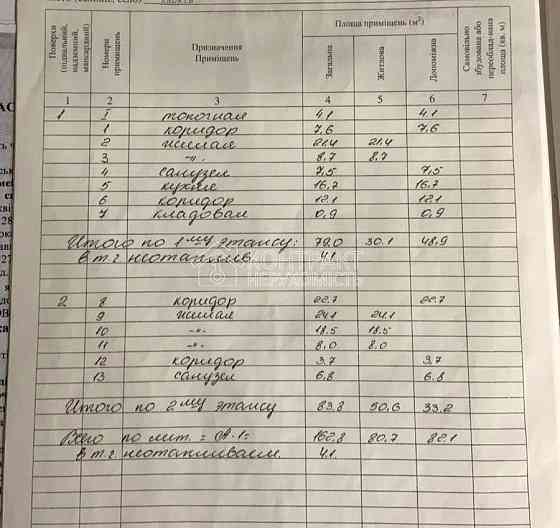 Поверхи (підвальний, надземний, мансардний)
Номери приміщень
Призначення Приміщень
Площа приміщень (м²)
Загальна
Житлова
Допоміжна
Самовільно збудована або переобладнана площа (кв. м)
1 2 3 4 5 6 7
1 I топочная 4,1 4,1
1 коридор 7,6 7,6
2 жилая 21,4 21,4
3 -"- 8,7 8,7
4 санузел 7,5 7,5
5 кухня 16,7 16,7
6 коридор 12,1 12,1
7 кладовая 0,9 0,9
Итого по 1му этажу: 79,0 30,1 48,9
в т.ч неотаплив. 4,1
КОНТРАКТ
НЕРУХОМІСТЬ
2 8 коридор 22,7 22,7
9 жилая 24,1 24,1
10 -"- 18,5 18,5
11 -"- 8,0 8,0
12 коридор 3,7 3,7
13 санузел 6,8 6,8
Итого по 2му этажу 83,8 50,6 33,2
Всего по лит. =А-1= 162,8 80,7 82,1
в т.ч неотапливаем. 4,1